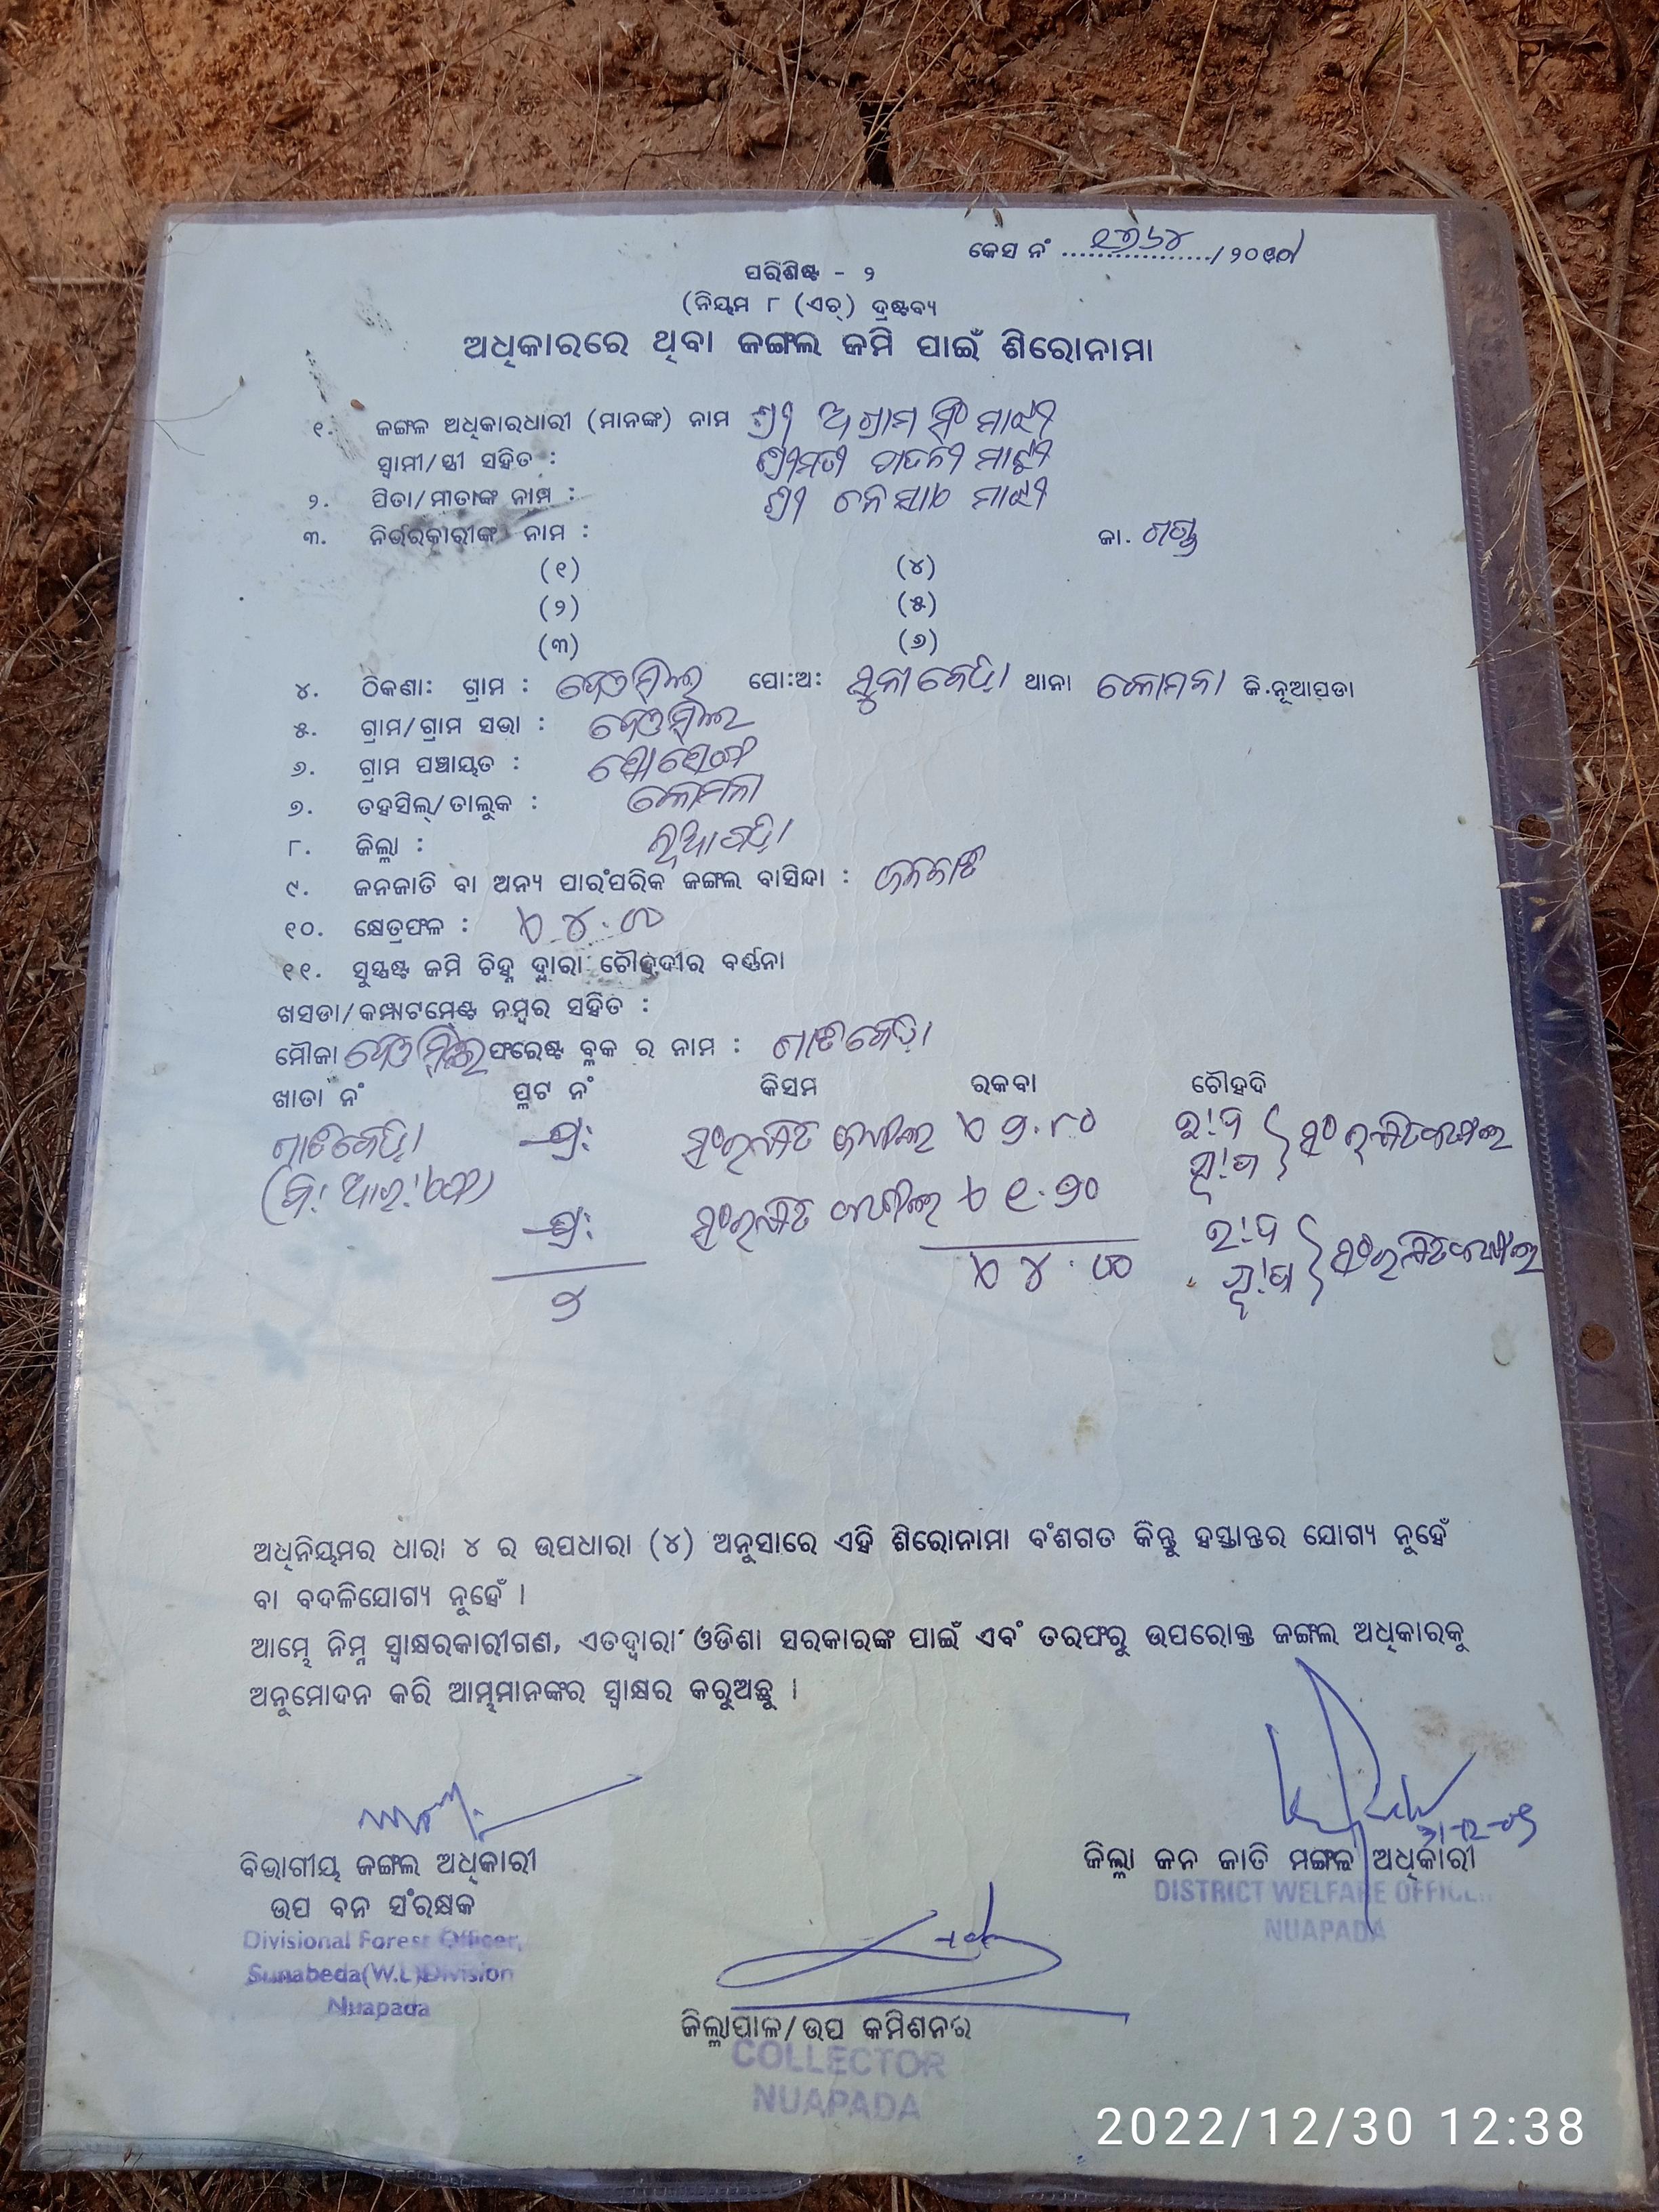 କେସ ନଂ ................../ ୨୦୧୦
ପରିଶିଷ୍ଟ - ୨
(ନିୟମ ୮ (ଏଚ୍) ଦ୍ରଷ୍ଟବ୍ୟ
ଅଧିକାରରେ ଥିବା ଜଙ୍ଗଲ ଜମି ପାଇଁ ଶିରୋନାମା
୧. ଜଙ୍ଗଲ ଅଧିକାରଧାରୀ (ମାନଙ୍କ) ନାମ ଶ୍ରୀ ଅଗ୍ରାମ ସିଂ ମାଝୀ
ସ୍ୱାମୀ/ସ୍ତ୍ରୀ ସହିତ : ଶ୍ରୀମତୀ ମାଝୀ
୨. ପିତା/ମାତାଙ୍କ ନାମ : ଶ୍ରୀ ମାଝୀ
୩. ନିର୍ଭରକାରୀଙ୍କ ନାମ : ଜା. ଗଣ୍ଡ
(୧) (୪)
(୨) (୫)
(୩) (୬)
୪. ଠିକଣା: ଗ୍ରାମ : ପୋ:ଅ: ସୁନାବେଡ଼ା ଥାନା କୋମନା ଜି.ନୂଆପଡା
୫. ଗ୍ରାମ/ଗ୍ରାମ ସଭା :
୬. ଗ୍ରାମ ପଞ୍ଚାୟତ :
୭. ତହସିଲ୍/ତାଲୁକ : କୋମନା
୮. ଜିଲ୍ଲା : ନୂଆପଡ଼ା
୯. ଜନଜାତି ବା ଅନ୍ୟ ପାରଂପରିକ ଜଙ୍ଗଲ ବାସିନ୍ଦା : ଜନଜାତି
୧୦. କ୍ଷେତ୍ରଫଳ : ୪.୦୦
୧୧. ସୁସ୍ପଷ୍ଟ ଜମି ଚିହ୍ନ ଦ୍ୱାରା ଚୌହଦୀର ବର୍ଣ୍ଣନା
ଖସଡା/କମ୍ପାଟମେଣ୍ଟ ନମ୍ବର ସହିତ :
ମୌଜା ଫରେଷ୍ଟ ବ୍ଳକ ର ନାମ : ପାଟବେଡ଼ା
ଖାତା ନଂ ପ୍ଳଟ ନଂ କିସମ ରକବା ଚୌହଦି
ପାଟବେଡ଼ା ସଂରକ୍ଷିତ ଜଙ୍ଗଲ ୨.୮୦ ଉ!ଦ ସଂରକ୍ଷିତ ଜଙ୍ଗଲ
ପୂ!ପ
ସଂରକ୍ଷିତ ଜଙ୍ଗଲ ୧.୨୦ ଉ!ଦ ସଂରକ୍ଷିତ ଜଙ୍ଗଲ
୨ ୪.୦୦ ପୂ!ପ
ଅଧିନିୟମର ଧାରା ୪ ର ଉପଧାରା (୪) ଅନୁସାରେ ଏହି ଶିରୋନାମା ବଂଶଗତ କିନ୍ତୁ ହସ୍ତାନ୍ତର ଯୋଗ୍ୟ ନୁହେଁ
ବା ବଦଳିଯୋଗ୍ୟ ନୁହେଁ ।
ଆମ୍ଭେ ନିମ୍ନ ସ୍ୱାକ୍ଷରକାରୀଗଣ, ଏତଦ୍ୱାରା ଓଡିଶା ସରକାରଙ୍କ ପାଇଁ ଏବଂ ତରଫରୁ ଉପରୋକ୍ତ ଜଙ୍ଗଲ ଅଧିକାରକୁ
ଅନୁମୋଦନ କରି ଆମ୍ଭମାନଙ୍କର ସ୍ୱାକ୍ଷର କରୁଅଛୁ ।
ବିଭାଗୀୟ ଜଙ୍ଗଲ ଅଧିକାରୀ
ଉପ ବନ ସଂରକ୍ଷକ
Divisional Forest Officer,
Sunabeda(W.L)Division
Nuapada
ଜିଲ୍ଲା ଜନ ଜାତି ମଙ୍ଗଳ ଅଧିକାରୀ
DISTRICT WELFARE OFFICER
NUAPADA
ଜିଲ୍ଲାପାଳ/ଉପ କମିଶନର
COLLECTOR
NUAPADA
2022/12/30 12:38